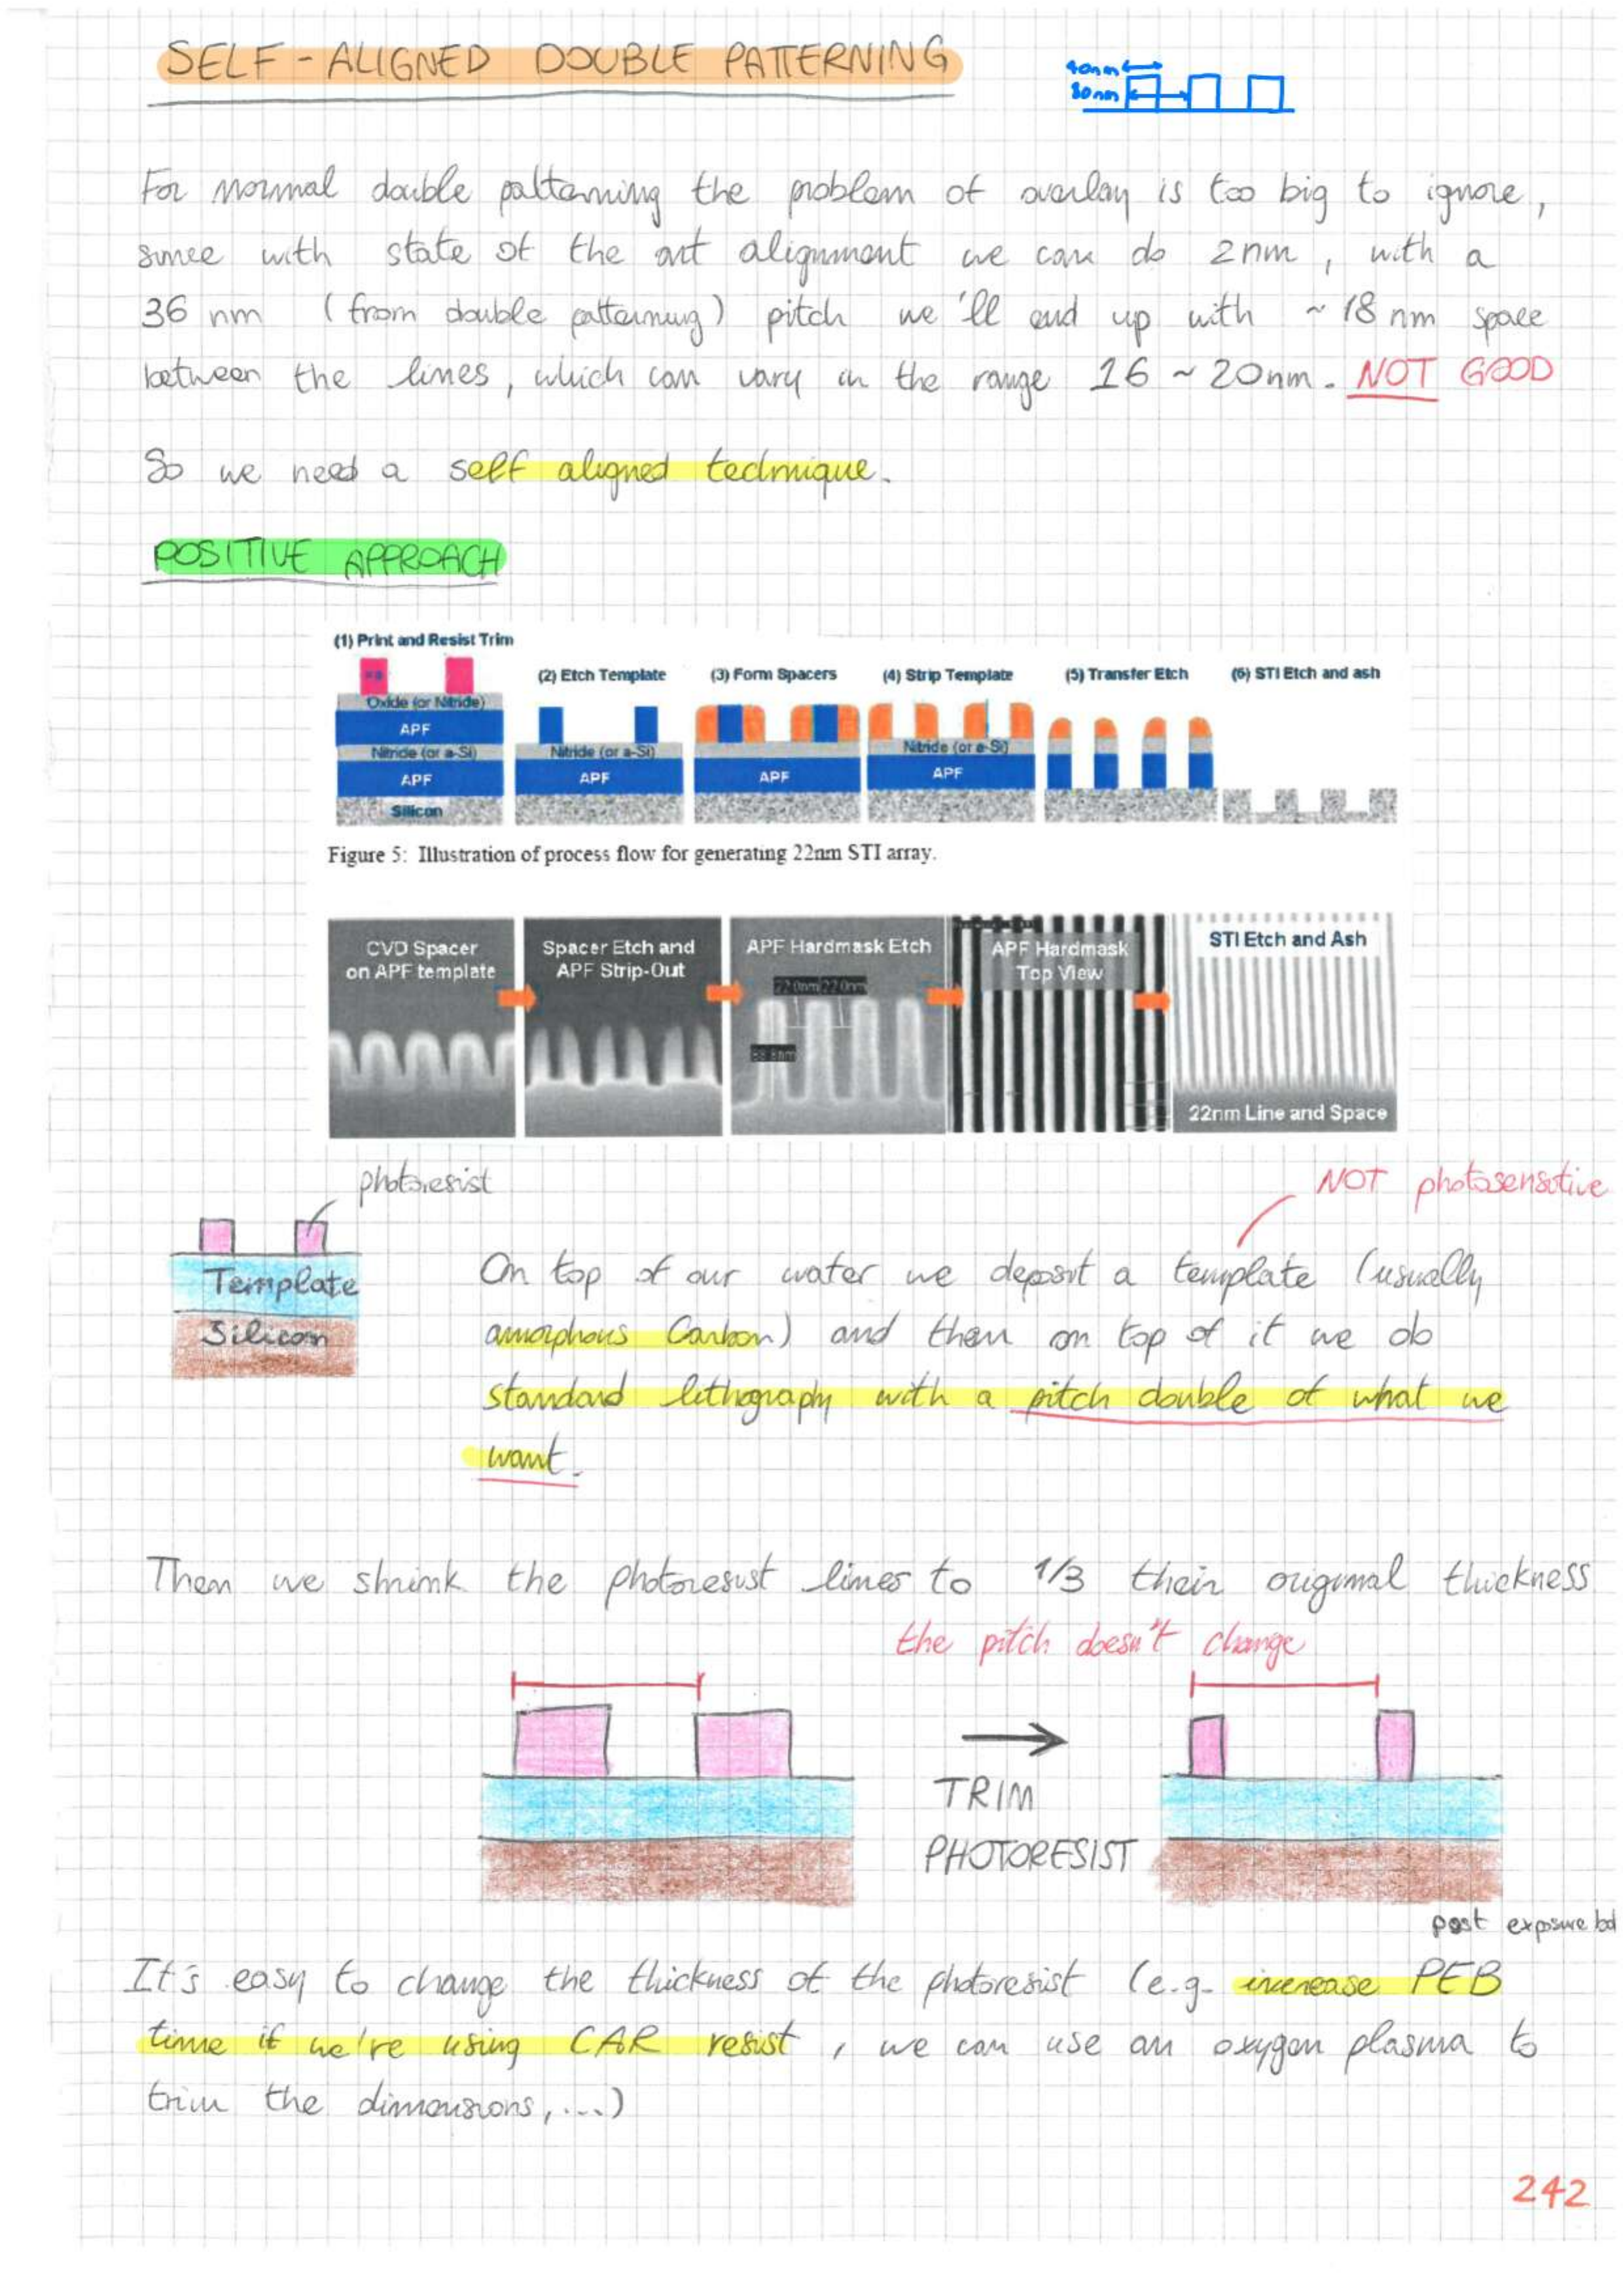 SELF-ALIGNED DOUBLE PATTERNING
40nm
80nm
For normal double patterning the problem of overlay is too big to ignore,
since with state of the art alignment we can do 2nm, with a
36 nm (from double patterning) pitch we'll end up with ~ 18 nm space
between the lines, which can vary in the range 16 ~ 20nm. NOT GOOD
So we need a self aligned technique.
POSITIVE APPROACH
(1) Print and Resist Trim
(2) Etch Template
(3) Form Spacers
(4) Strip Template
(5) Transfer Etch
(6) STI Etch and ash
Oxide (or Nitride)
APF
Nitride (or a-Si)
APF
Silicon
Nitride (or a-Si)
APF
APF
Nitride (or a-Si)
APF
Figure 5: Illustration of process flow for generating 22nm STI array.
CVD Spacer
on APF template
Spacer Etch and
APF Strip-Out
APF Hardmask Etch
22.0nm 22.0nm
APF Hardmask
Top View
STI Etch and Ash
22nm Line and Space
photoresist
NOT photosensitive
Template
Silicon
On top of our water we deposit a template (usually
amorphous Carbon) and then on top of it we do
standard lithography with a pitch double of what we
want.
Then we shrink the photoresist lines to 1/3 their original thickness
the pitch doesn't change
TRIM
PHOTORESIST
post exposure
It's easy to change the thickness of the photoresist (e.g. increase PEB
time if we're using CAR resist, we can use an oxygen plasma to
trim the dimensions,...)
242